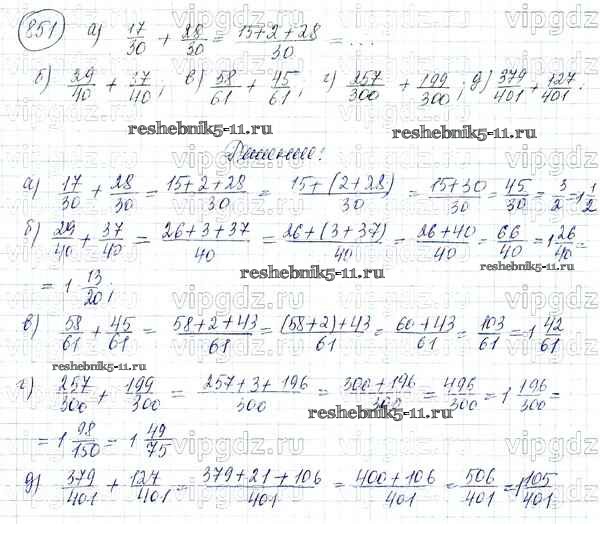 851 а) 17/30 + 28/30 = (15+2+28)/30 = ...
б) 29/40 + 37/40; в) 58/61 + 45/61; г) 257/300 + 199/300; д) 379/401 + 127/401.
reshebnik5-11.ru reshebnik5-11.ru
Решение:
а) 17/30 + 28/30 = (15+2+28)/30 = (15+(2+28))/30 = (15+30)/30 = 45/30 = 3/2 = 1 1/2
б) 29/40 + 37/40 = (26+3+37)/40 = (26+(3+37))/40 = (26+40)/40 = 66/40 = 1 26/40 =
reshebnik5-11.ru reshebnik5-11.ru
= 1 13/20;
в) 58/61 + 45/61 = (58+2+43)/61 = ((58+2)+43)/61 = (60+43)/61 = 103/61 = 1 42/61
reshebnik5-11.ru
г) 257/300 + 199/300 = (257+3+196)/300 = (300+196)/300 = 496/300 = 1 196/300 =
reshebnik5-11.ru
= 1 98/150 = 1 49/75
д) 379/401 + 127/401 = (379+21+106)/401 = (400+106)/401 = 506/401 = 1 105/401
vipgdz.ru